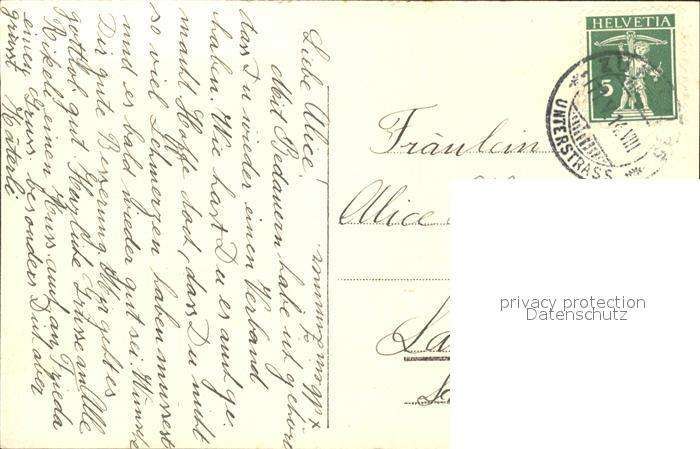 Liebe Alice!
Mit Bedauern habe ich gehört
dass Du wieder einen Verband
haben. Wie hast Du es auch ge
macht. Hoffe doch, dass Du nicht
so viel Schmerzen haben müssest
und es bald wieder gut sei. Wünsche
Dir gute Besserung. Mir geht es
gottlob gut. Herzliche Grüsse an Alle
Rikeli einen Kuss auch an Frieda
einen Gruss besonders Dich aber
grüsst Käterli
Fräulein
Alice
HELVETIA
5
UNTERSTRASS
privacy protection
Datenschutz